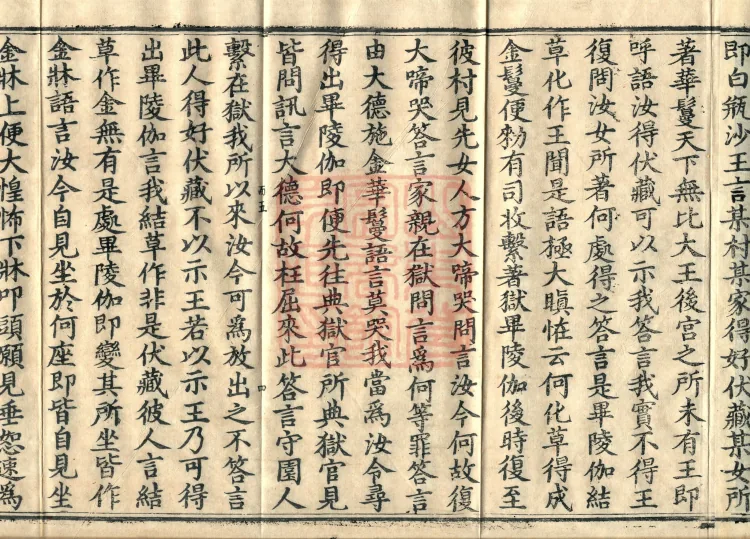 即白缾沙王言某村某家得好伏藏某女所
著華鬘天下無比大王後宮之所未有王即
呼語汝得伏藏可以示我答言我實不得王
復問汝女所著何處得之答言是畢陵伽結
草化作王聞是語極大瞋恠云何化草得成
金鬘便勑有司收繫著獄畢陵伽後時復至
彼村見先女人方大啼哭問言汝今何故復
大啼哭答言家親在獄問言爲何等罪答言
由大德施金華鬘語言莫哭我當爲汝令尋
得出畢陵伽即便先往典獄官所典獄官見
皆問訊言大德何故枉屈來此答言守園人
繫在獄我所以來汝今可爲放出之不答言
此人得好伏藏不以示王若以示王乃可得
出畢陵伽言我結草作非是伏藏彼人言結
草作金無有是處畢陵伽即變其所坐皆作
金牀語言汝今自見坐於何座即皆自見坐
金牀上便大惶怖下牀叩頭願見垂恕速爲